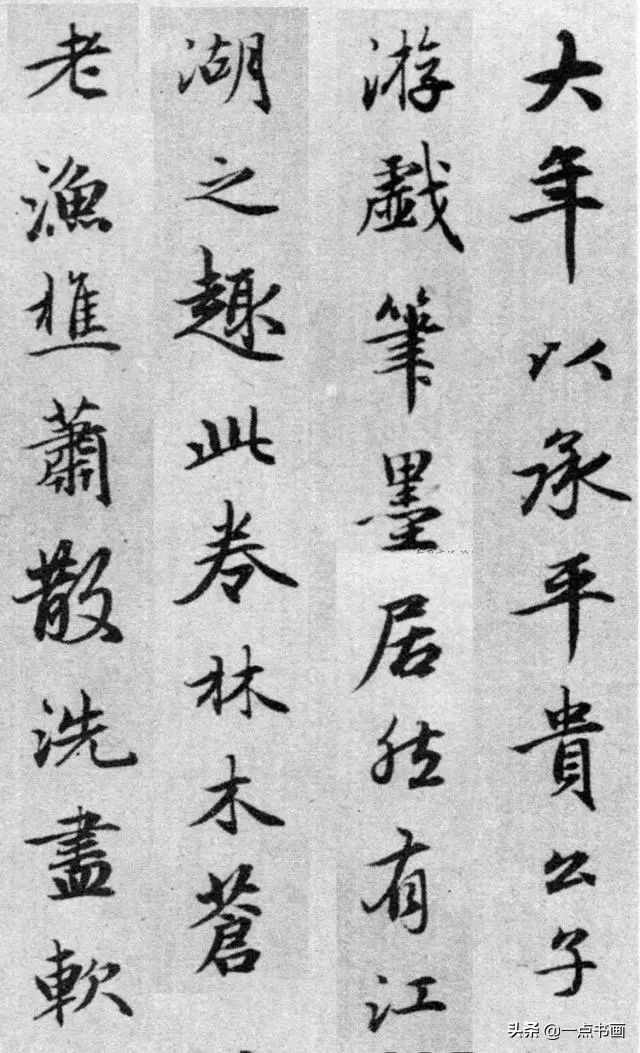 大年以承平貴公子
游戲筆墨居然有江
湖之趣此卷林木蒼
老漁樵蕭散洗盡軟
头条 @一点书画